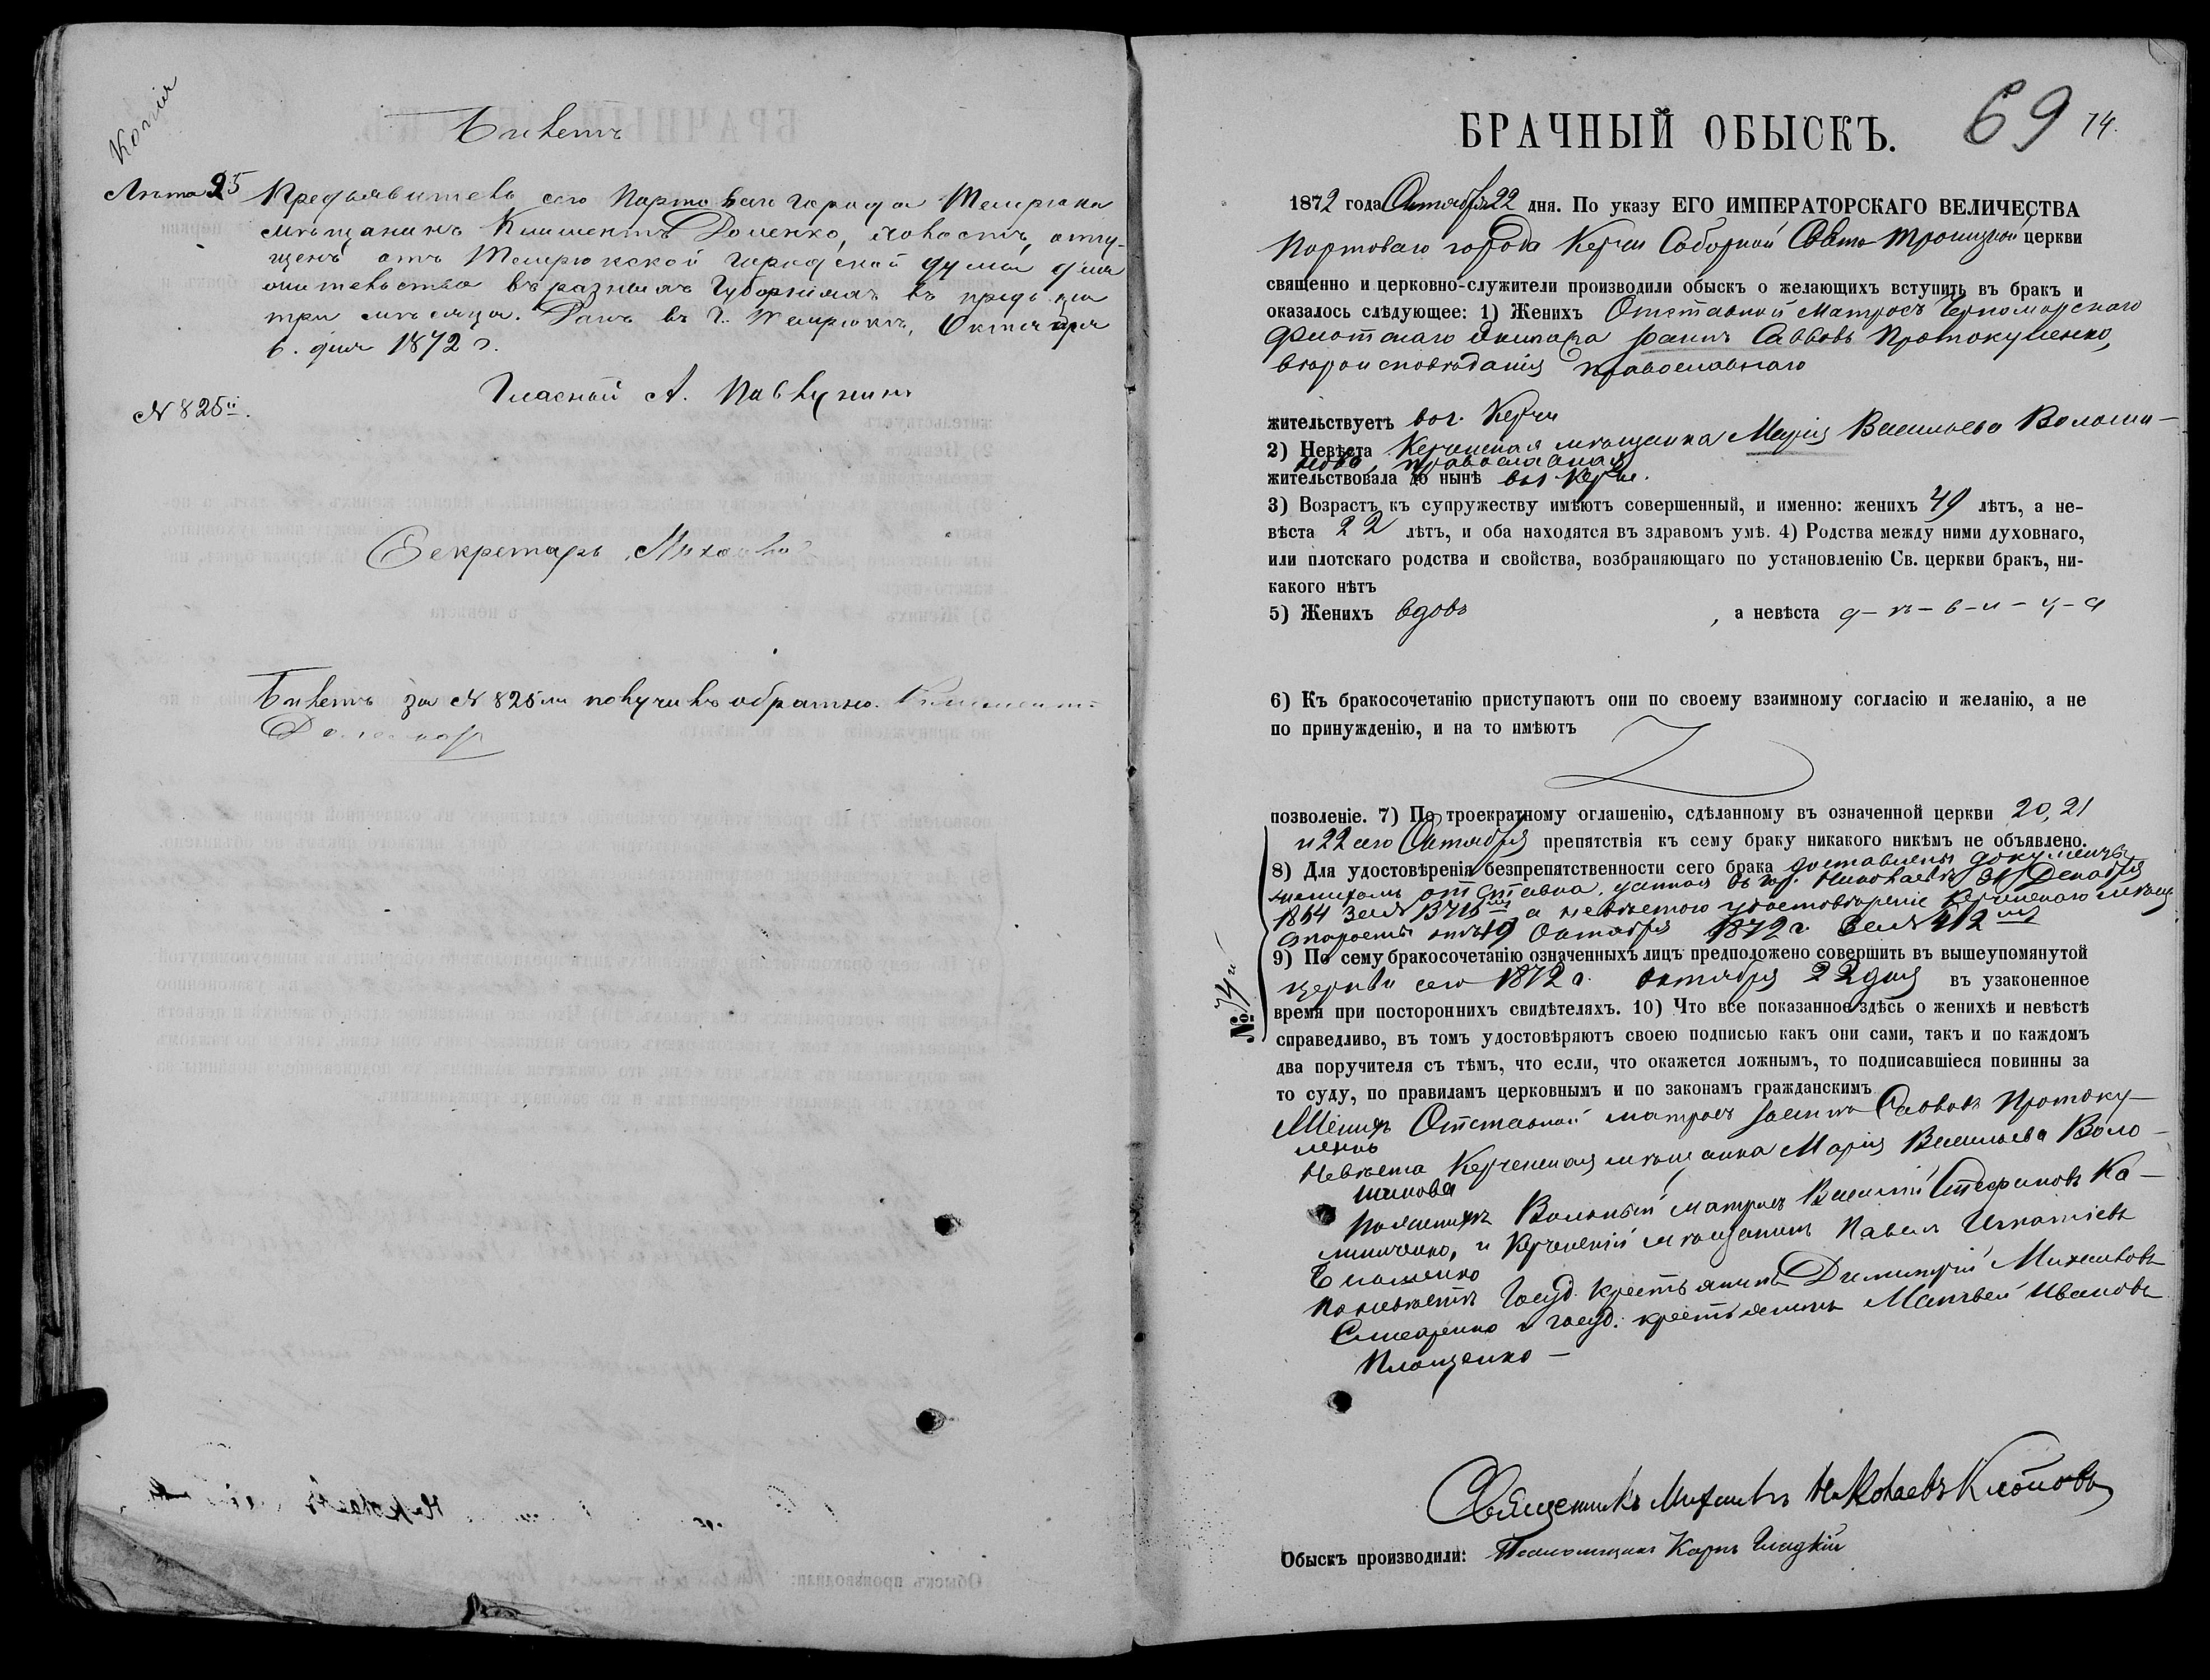 Копія
Билетъ
Лѣта 25 Предъявитель сего Портоваго города Темрюка
мѣщанинъ Климентъ Доценко, холостъ, отпу-
щенъ отъ Темрюкской городской думы для
жительства въ разныхъ Губерніяхъ въ предь на
три мѣсяца. Данъ въ г. Темрюкѣ, Октября
6. дня 1872 г.
Гласный А.
№ 825й.
Секретарь
Билетъ за № 825м получилъ обратно. Климентъ
БРАЧНЫЙ ОБЫСКЪ.
69 74.
1872 года Октября 22 дня. По указу ЕГО ИМПЕРАТОРСКАГО ВЕЛИЧЕСТВА
Портоваго города Керчи Соборной Свято Троицкой церкви
священно и церковно-служители производили обыскъ о желающихъ вступить въ бракъ и
оказалось слѣдующее: 1) Женихъ Отставной Матросъ Черноморскаго
Флотскаго Экипажа Саввовъ Протокуленко,
православнаго
жительствуетъ вог. Керчи
2) Невѣста Керченская мѣщанка Марія Васильева Волоши-
нова, православная
жительствовала до нынѣ вог. Керчи.
3) Возрастъ къ супружеству имѣютъ совершенный, и именно: женихъ 49 лѣтъ, а не-
вѣста 22 лѣтъ, и оба находятся въ здравомъ умѣ. 4) Родства между ними духовнаго,
или плотскаго родства и свойства, возбраняющаго по установленію Св. церкви бракъ, ни-
какого нѣтъ
5) Женихъ вдовъ , а невѣста д-ѣ-в-и-ц-а
6) Къ бракосочетанію приступаютъ они по своему взаимному согласію и желанію, а не
по принужденію, и на то имѣютъ
позволеніе. 7) По троекратному оглашенію, сдѣланному въ означенной церкви 20, 21
и 22 сего Октября препятствія къ сему браку никакого никѣмъ не объявлено.
8) Для удостовѣренія безпрепятственности сего брака доставлены документы
женихомъ отставка, данная въ гор. Николаевѣ 31 Декабря
1864 за № а невѣстою удостовѣреніе Керченскаго мѣщ.
старосты отъ 19 Октября 1872 г. за № 412
9) По сему бракосочетанію означенныхъ лицъ предположено совершить въ вышеупомянутой
церкви сего 1872 г. Октября 22 дня въ узаконенное
время при постороннихъ свидѣтеляхъ. 10) Что все показанное здѣсь о женихѣ и невѣстѣ
справедливо, въ томъ удостовѣряютъ своею подписью какъ они сами, такъ и по каждомъ
два поручителя съ тѣмъ, что если, что окажется ложнымъ, то подписавшіеся повинны за
то суду, по правиламъ церковнымъ и по законамъ гражданскимъ
№ 74й
Женихъ Отставной матросъ Саввовъ Протоку-
ленко
Невѣста Керченская мѣщанка Марія Васильева Воло-
шинова
По женихѣ Вольный матросъ Василий Стефановъ Ка-
линиченко, и Керченскій мѣщанинъ Павелъ Игнатіевъ
По невѣстѣ Госуд. крестьянинъ Димитрій Михаиловъ
и госуд. крестьянинъ Матвей Ивановъ
Площенко —
Священникъ Михаилъ Николаевъ
Обыскъ производили: Псаломщикъ Карпъ Гладкій